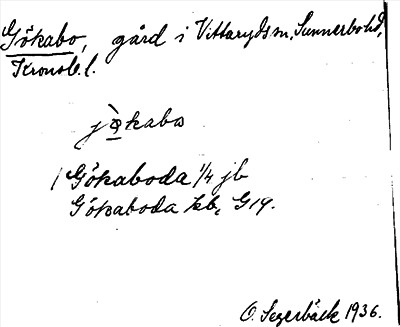 Gökabo, gård i Vittaryds sn, Sunnerbo hd,
Kronob. l.
jö̀kabo
Gökaboda 1/4 jb
Gökaboda kb, G 19.
O. Segerbäck 1936.